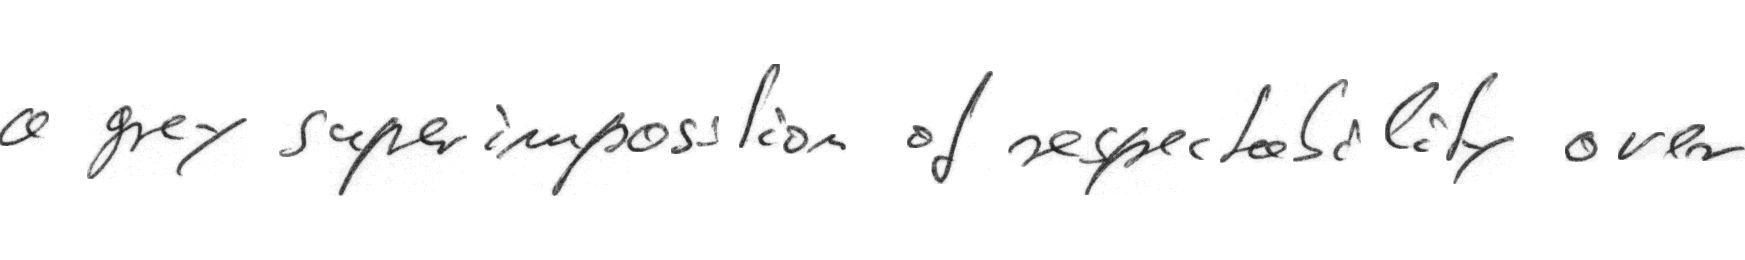 a grey superimposition of respectability over